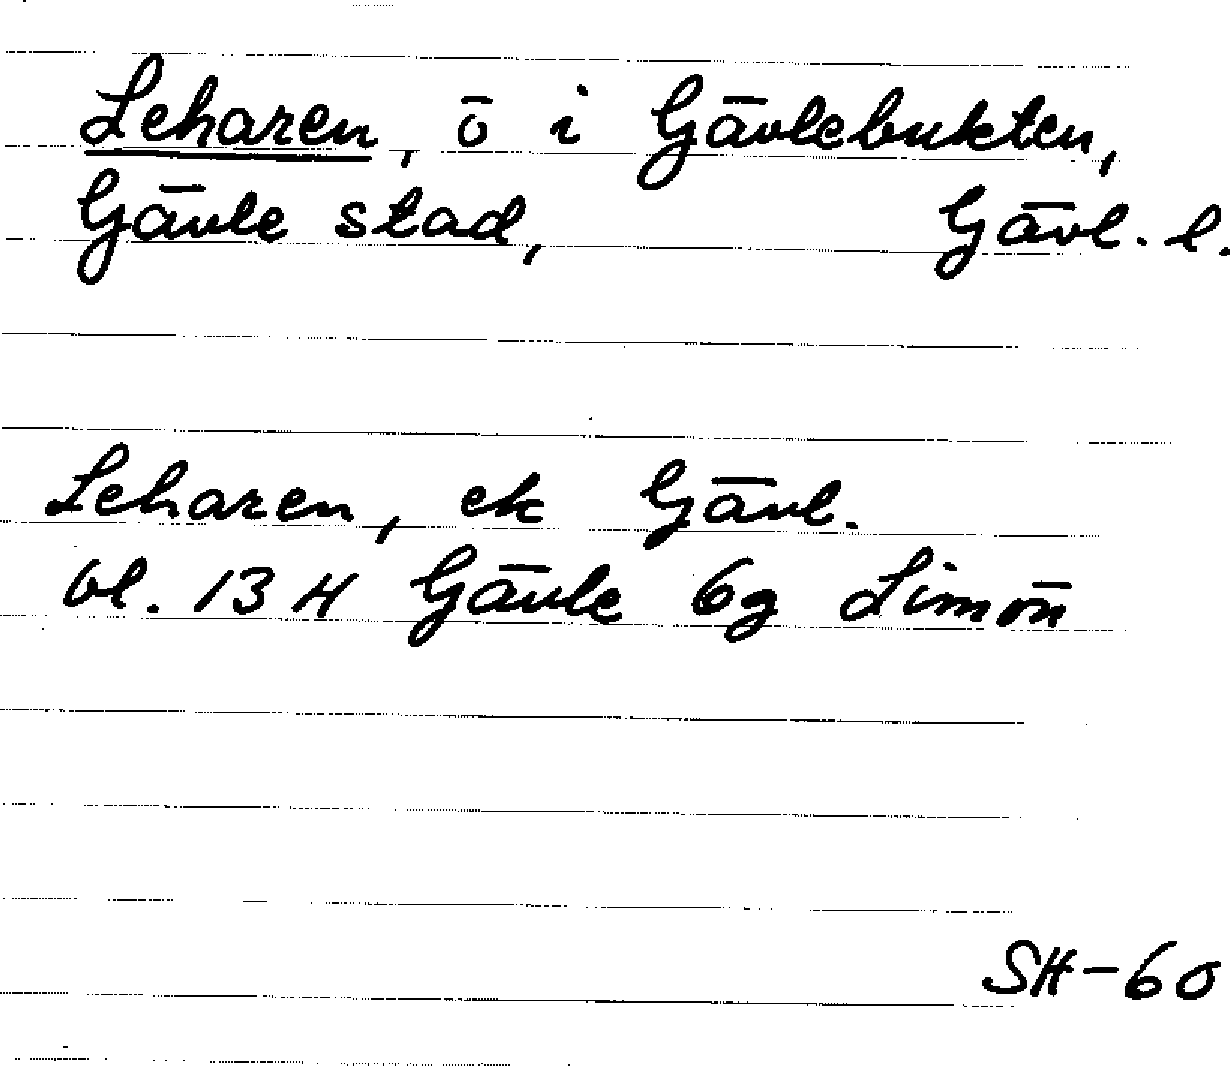 Leharen, ö i Gävlebukten,
Gävle stad, Gävl. l.
Leharen, ek Gävl.
bl. 13 H Gävle 6g Limön
SH-60